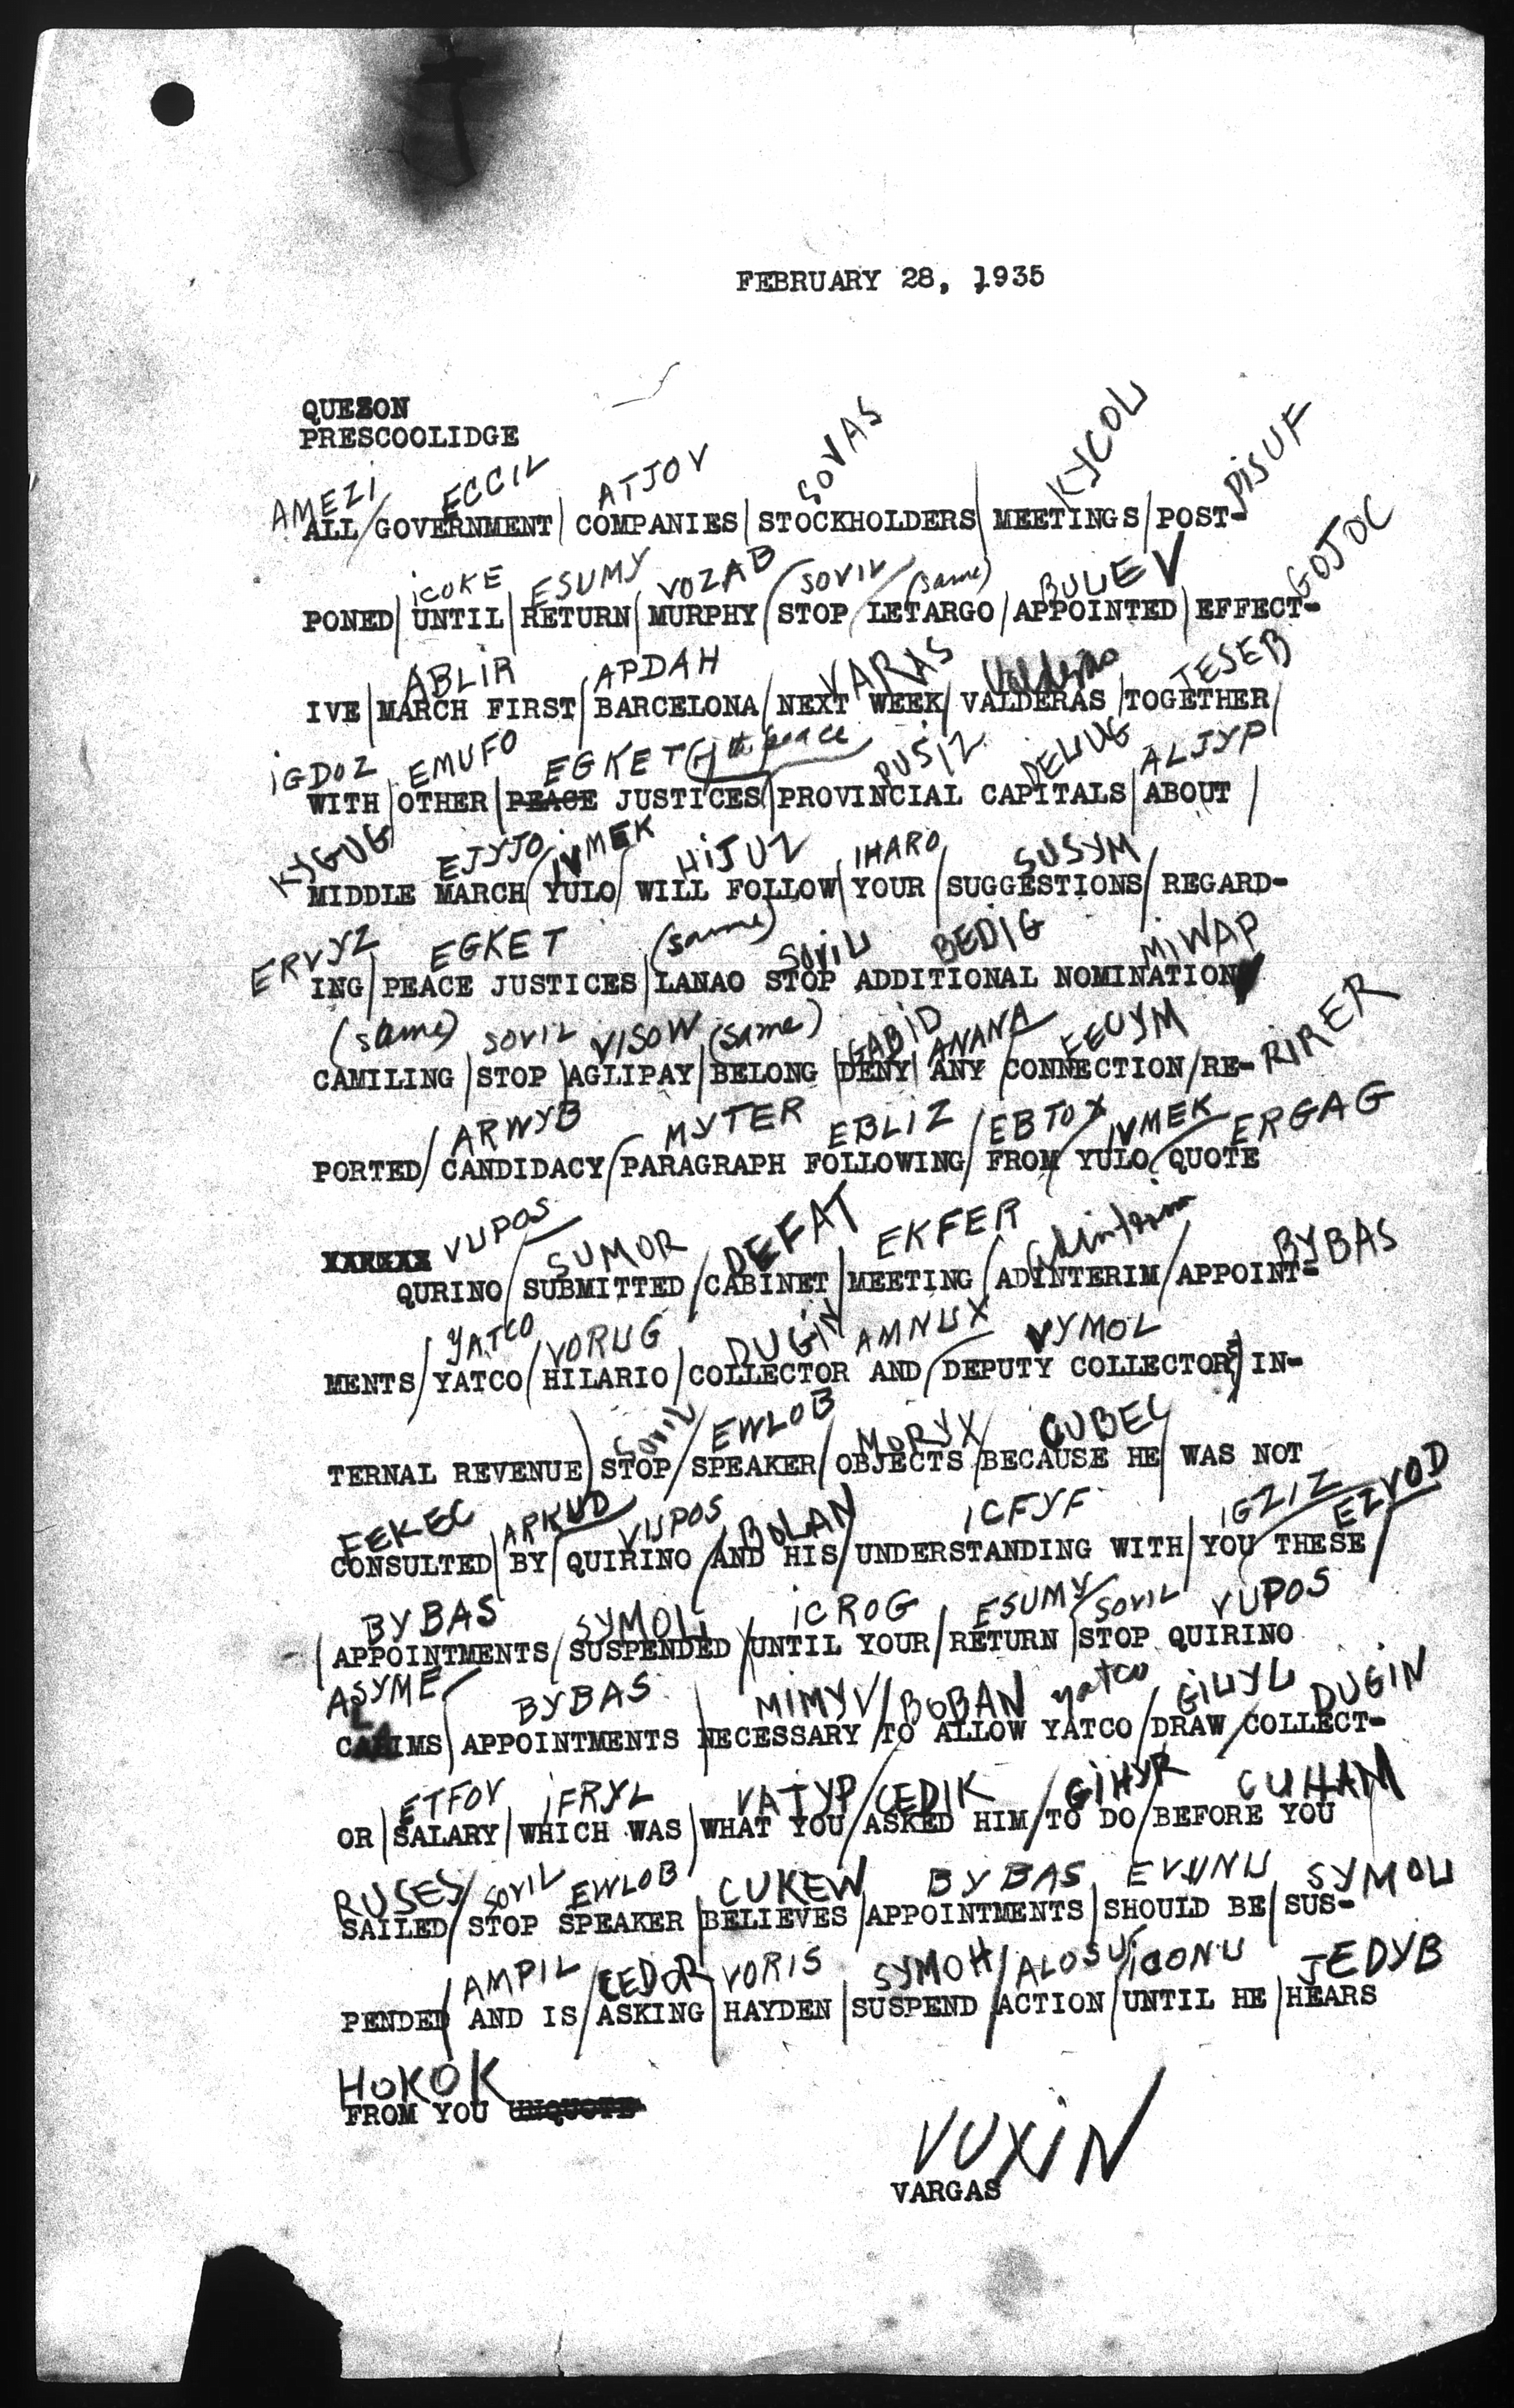 FEBRUARY 28, 1935
QUEZON
PRESCOOLIDGE
AMEZI ECCIL ATJOV SOVAS KYCOU PISUF
ALL/GOVERNMENT/COMPANIES/STOCKHOLDERS/MEETINGS/POST-
ICOKE ESUMY VOZAB SOVIL (same) BULEV GOJOC
PONED/UNTIL/RETURN/MURPHY/STOP/LETARGO/APPOINTED/EFFECT-
ABLIR APDAH VARAS Valderas JESEB
IVE/MARCH FIRST/BARCELONA/NEXT WEEK/VALDERAS/TOGETHER/
IGDOZ EMUFO EGKET (of the peace) PUSIZ DELUG ALJYP
WITH/OTHER/PEACE JUSTICES/PROVINCIAL CAPITALS/ABOUT/
KYGUG EJYJO IVMEK HIJUZ IHARO SUSYM
MIDDLE MARCH/YULO/WILL FOLLOW/YOUR/SUGGESTIONS/REGARD-
ERVYZ EGKET (same) SOVIL BEDIG MIWAP
ING/PEACE JUSTICES/LANAO STOP ADDITIONAL NOMINATION
(same) SOVIL VISOW (same) GABID ANANA EEUYM RIRER
CAMILING/STOP/AGLIPAY/BELONG/DENY/ANY/CONNECTION/RE-
ARWYB MYTER EBLIZ EBTOX IVMEK ERGAG
PORTED/CANDIDACY/PARAGRAPH FOLLOWING/FROM/YULO/QUOTE
VUPOS SUMOR DEFAT EKFER Adinterim BYBAS
QURINO/SUBMITTED/CABINET/MEETING/ADINTERIM/APPOINT-
YATCO VORUG DUGIN AMNUX VYMOL
MENTS/YATCO/HILARIO/COLLECTOR AND/DEPUTY COLLECTOR/IN-
SOVIL EWLOB MORYX CUBEC
TERNAL REVENUE/STOP/SPEAKER/OBJECTS/BECAUSE HE/WAS NOT
EEKEC ARKUD VUPOS BOLAN ICFYF IGZIZ EZVOD
CONSULTED/BY/QUIRINO/AND HIS/UNDERSTANDING WITH/YOU/THESE/
BYBAS SYMOU ICROG ESUMY SOVIL VUPOS
/APPOINTMENTS/SUSPENDED/UNTIL YOUR/RETURN/STOP QUIRINO
ASYME BYBAS MIMYV BOBAN yatco GIUYL DUGIN
CLAIMS/APPOINTMENTS/NECESSARY/TO ALLOW YATCO/DRAW/COLLECT-
ETFOV IFRYL VATYP CEDIK GIHYR CUHAM
OR/SALARY/WHICH WAS/WHAT YOU/ASKED HIM/TO DO/BEFORE YOU
RUSES SOVIL EWLOB CUKEW BYBAS EVUNU SYMOU
SAILED/STOP SPEAKER/BELIEVES/APPOINTMENTS/SHOULD BE/SUS-
AMPIL CEDOR VORIS SYMOH ALOSU ICONU JEDYB
PENDED/AND IS/ASKING/HAYDEN/SUSPEND/ACTION/UNTIL HE/HEARS
HOKOK
FROM YOU UNQUOTE
VUXIN
VARGAS